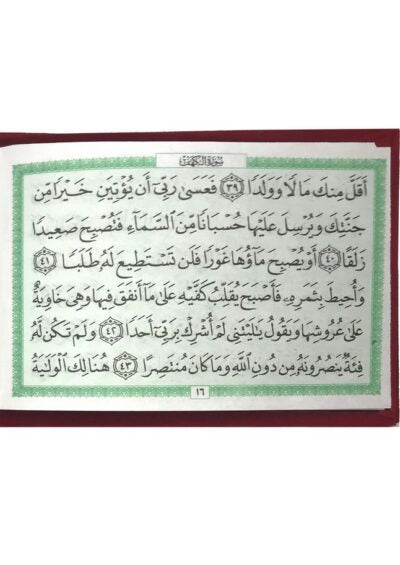 سورة الكهف
أَقَلَّ مِنكَ مَالًا وَوَلَدًا ﴿٣٩﴾ فَعَسَىٰ رَبِّىٓ أَن يُؤْتِيَنِ خَيْرًا مِّن
جَنَّتِكَ وَيُرْسِلَ عَلَيْهَا حُسْبَانًا مِّنَ ٱلسَّمَآءِ فَتُصْبِحَ صَعِيدًا
زَلَقًا ﴿٤٠﴾ أَوْ يُصْبِحَ مَآؤُهَا غَوْرًا فَلَن تَسْتَطِيعَ لَهُۥ طَلَبًا ﴿٤١﴾
وَأُحِيطَ بِثَمَرِهِۦ فَأَصْبَحَ يُقَلِّبُ كَفَّيْهِ عَلَىٰ مَآ أَنفَقَ فِيهَا وَهِىَ خَاوِيَةٌ
عَلَىٰ عُرُوشِهَا وَيَقُولُ يَٰلَيْتَنِى لَمْ أُشْرِكْ بِرَبِّىٓ أَحَدًا ﴿٤٢﴾ وَلَمْ تَكُن لَّهُۥ
فِئَةٌ يَنصُرُونَهُۥ مِن دُونِ ٱللَّهِ وَمَا كَانَ مُنتَصِرًا ﴿٤٣﴾ هُنَالِكَ ٱلْوَلَٰيَةُ
١٦